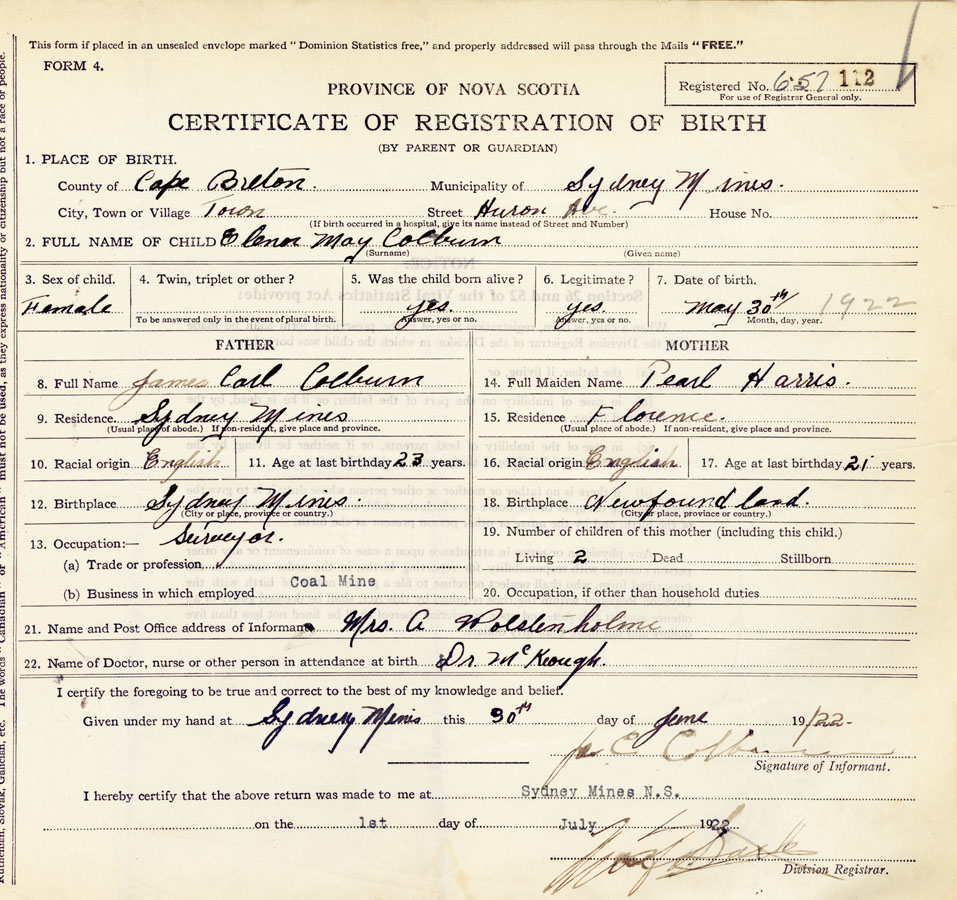 This form if placed in an unsealed envelope marked "Dominion Statistics free," and properly addressed will pass through the Mails "FREE."
FORM 4.
Registered No. 657 112
For use of Registrar General only.
PROVINCE OF NOVA SCOTIA
CERTIFICATE OF REGISTRATION OF BIRTH
(BY PARENT OR GUARDIAN)
1. PLACE OF BIRTH.
County of Cape Breton. Municipality of Sydney Mines.
City, Town or Village Town Street Huron Ave. House No.
(If birth occurred in a hospital, give its name instead of Street and Number)
2. FULL NAME OF CHILD Elenor May Colburn
(Surname) (Given name)
3. Sex of child. 4. Twin, triplet or other? 5. Was the child born alive? 6. Legitimate? 7. Date of birth.
Female yes. yes. May 30th 1922
To be answered only in the event of plural birth. Answer, yes or no. Answer, yes or no. Month, day, year.
FATHER MOTHER
8. Full Name James Carl Colburn 14. Full Maiden Name Pearl Harris.
9. Residence. Sydney Mines 15. Residence Florence.
(Usual place of abode.) If non-resident, give place and province. (Usual place of abode.) If non-resident, give place and province.
10. Racial origin English 11. Age at last birthday 23 years. 16. Racial origin English 17. Age at last birthday 21 years.
12. Birthplace Sydney Mines. 18. Birthplace Newfoundland.
(City or place, province or country.) (City or place, province or country.)
13. Occupation:— Surveyor. 19. Number of children of this mother (including this child.)
(a) Trade or profession Living 2 Dead Stillborn
(b) Business in which employed Coal Mine 20. Occupation, if other than household duties
21. Name and Post Office address of Informant Mrs. A Wolstenholme
22. Name of Doctor, nurse or other person in attendance at birth Dr McKeough.
I certify the foregoing to be true and correct to the best of my knowledge and belief.
Given under my hand at Sydney Mines this 30th day of June 19/22-
C Colburn
Signature of Informant.
I hereby certify that the above return was made to me at Sydney Mines N.S.
on the 1st day of July 1922
Division Registrar.
Ruthenian, Slovak, Galician, etc. The words "Canadian" or "American" must not be used, as they express nationality or citizenship but not a race or people.